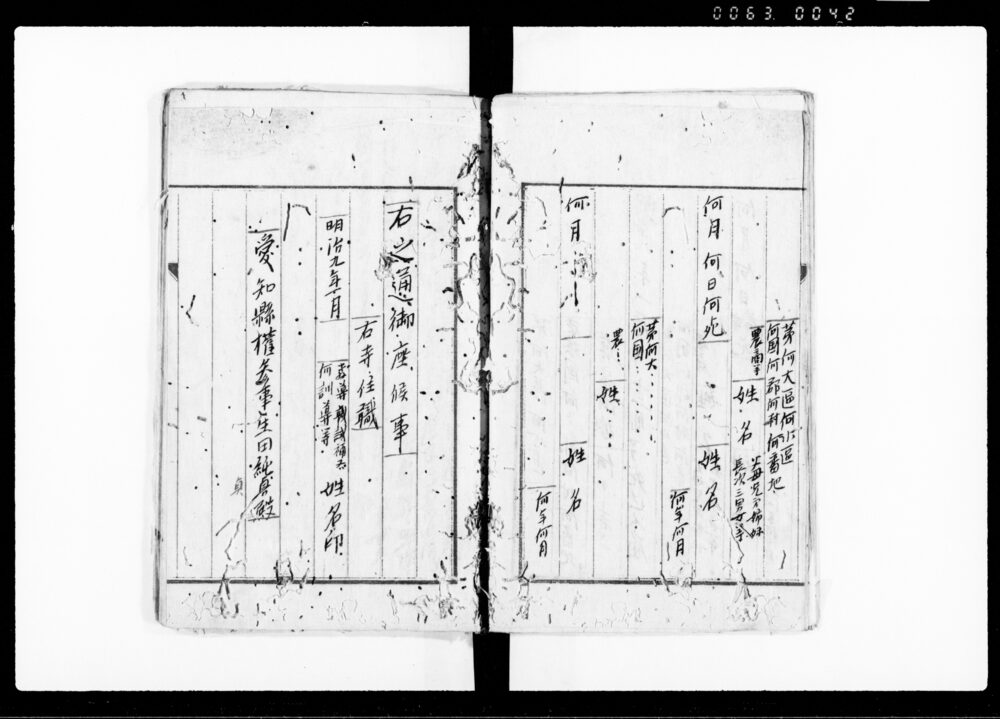 0063.0042
第何大區何小區
何國何郡何村何番地
農商
姓名
父母兄弟姉妹
長次三男女等
何月何日何死
姓名
何年何月
第何大
何國
農
姓
何月
姓名
何年何月
右之通御座候事
右寺住職
何訓導等
姓名印
明治九年一月
愛知縣權参事
殿